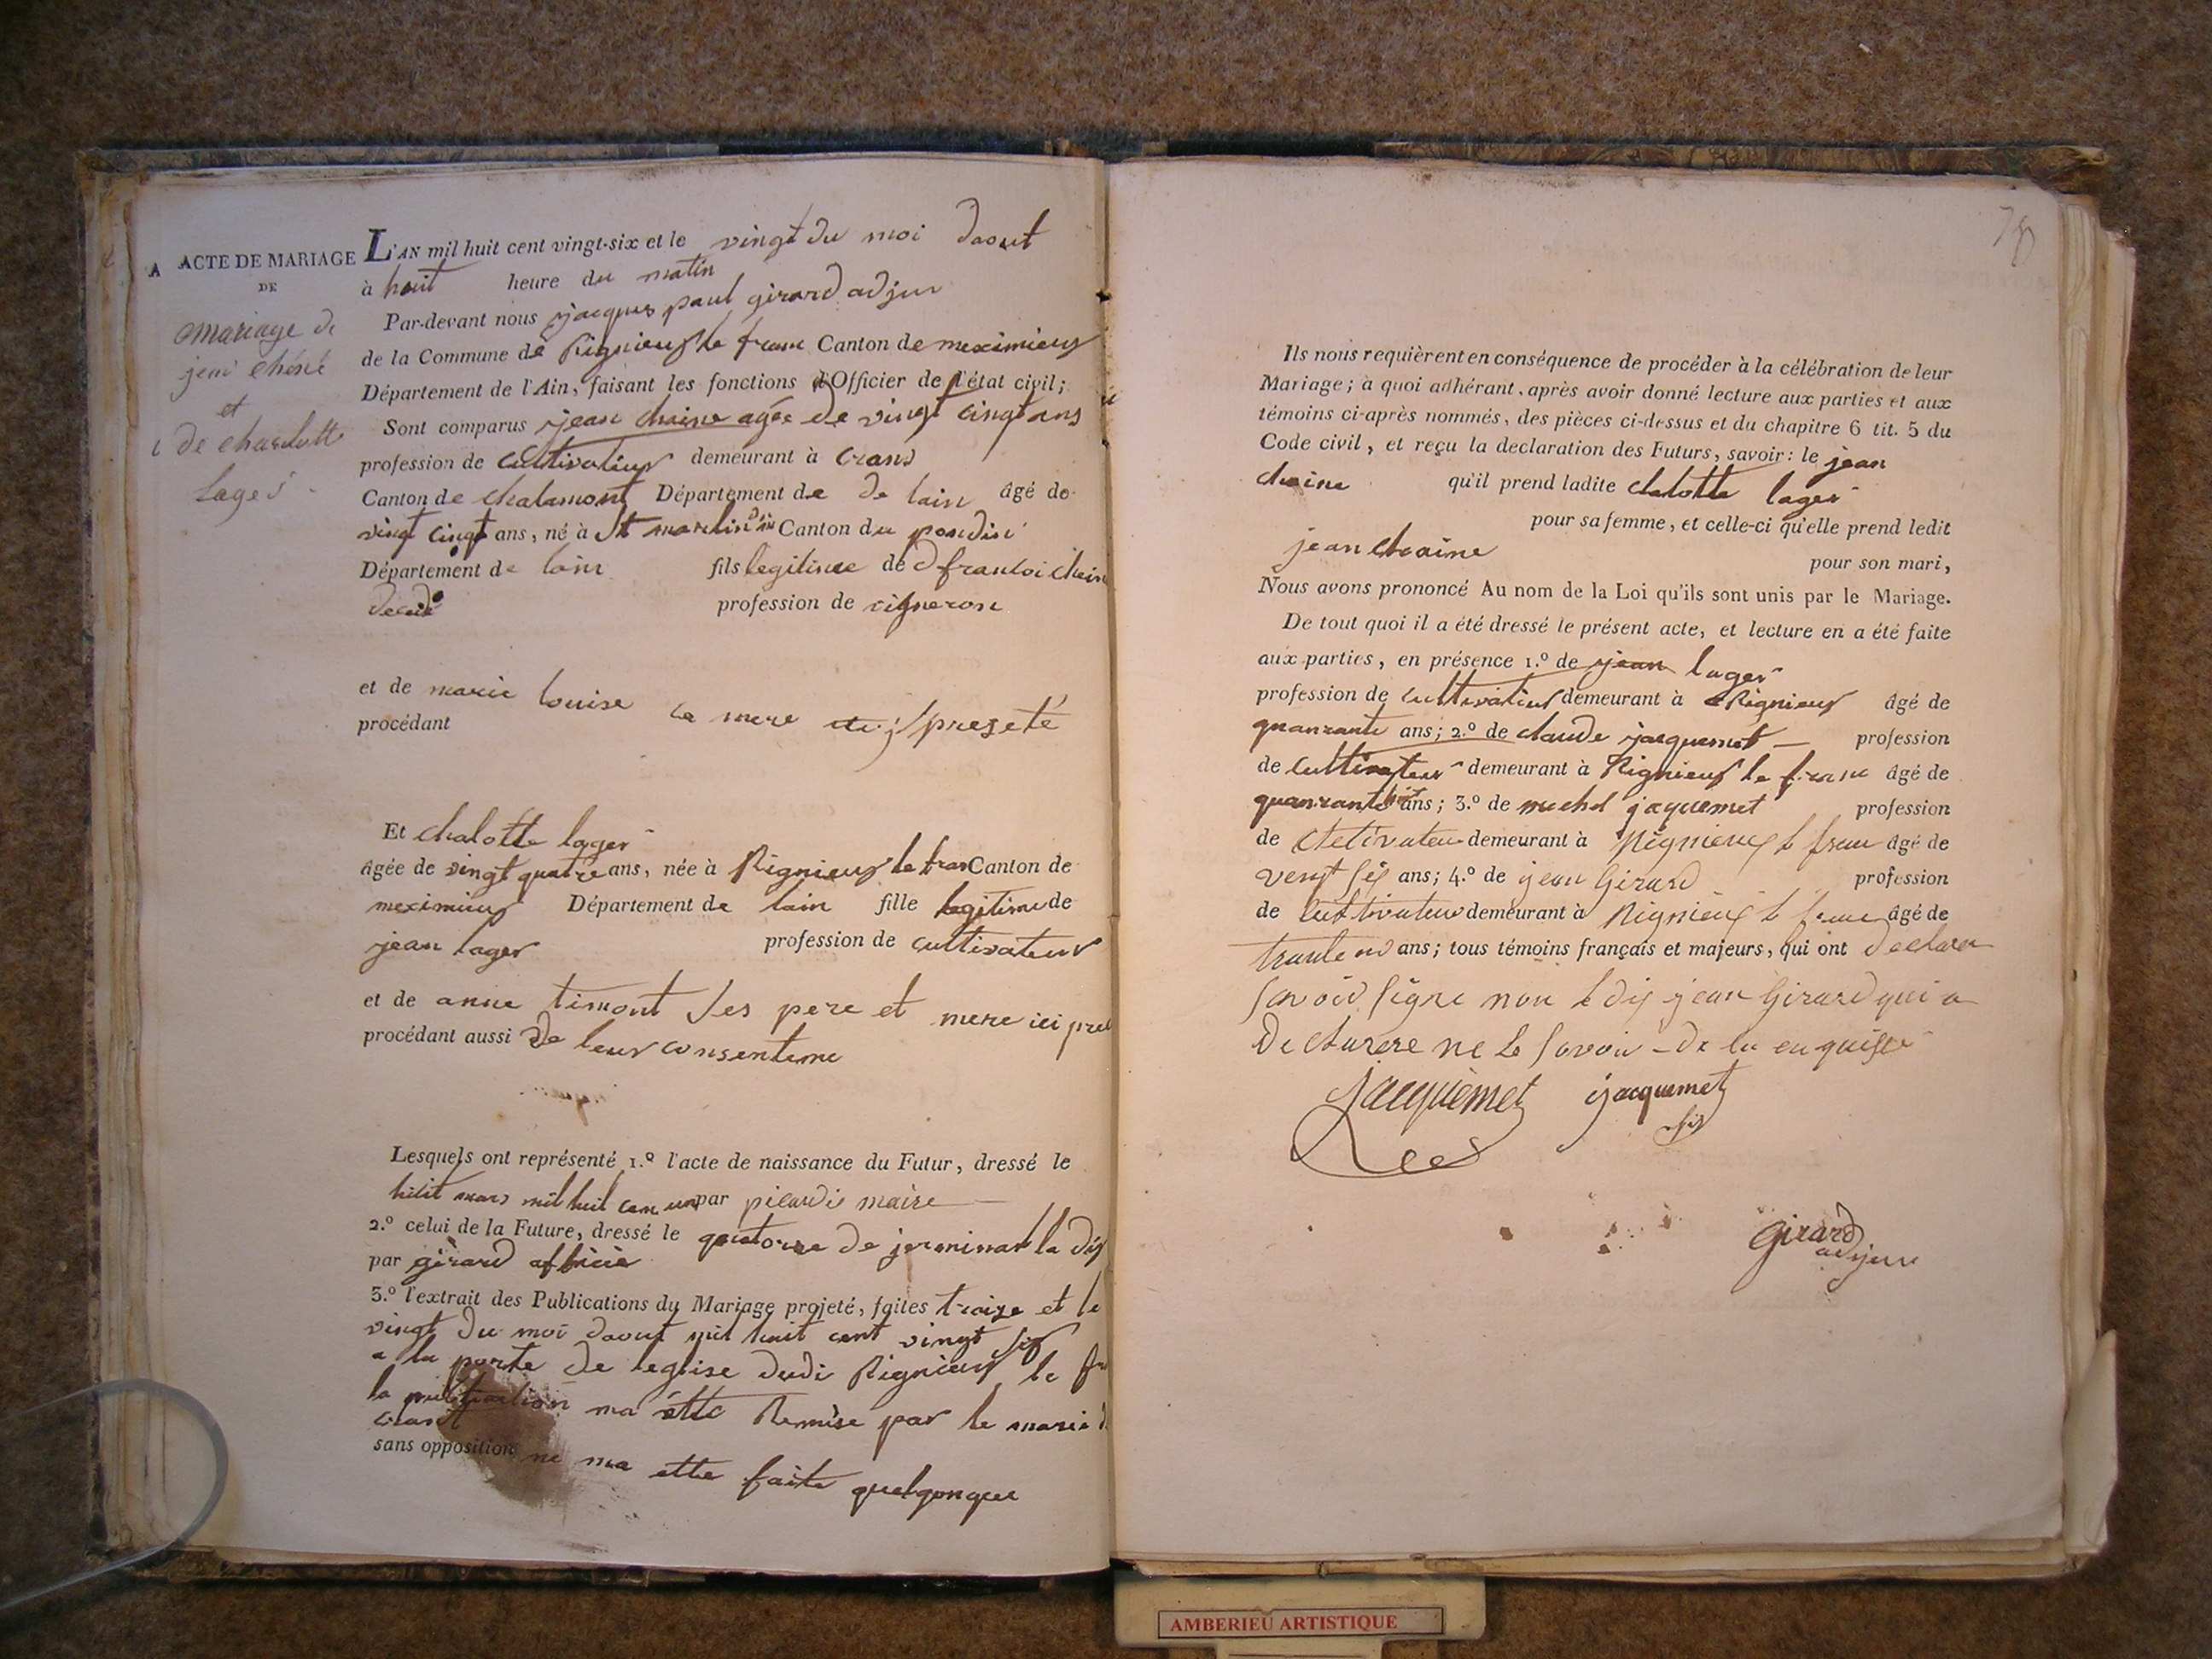 ACTE DE MARIAGE
DE
mariage de
jean chéné
et
de charlotte
lager
L'AN mil huit cent vingt-six et le vingt du moi daout
à huit heure du matin
Par-devant nous jacques paul girard adjun
de la Commune de Rignieux le franc Canton de meximieux
Département de l'Ain, faisant les fonctions d'Officier de l'état civil;
Sont comparus jean chaine agée de vingt cinqt ans
profession de cultivateur demeurant à crans
Canton de chalamont Département de de lain âgé de
vingt cinqt ans, né à St martin Canton du
Département de lain fils legitime de françoi chaine
decedé profession de vigneron
et de marie louise sa mere presete
procédant
Et chalotte lager
âgée de vingt quatre ans, née à Rignieux le fran Canton de
meximieux Département de lain fille legitime de
jean lager profession de cultivateur
et de anne timont ses pere et mere ici pres
procédant aussi de leur consenteme
Lesquels ont représenté 1.º l'acte de naissance du Futur, dressé le
huit mars mil huit cent un par maire
2.º celui de la Future, dressé le quatorze de jerminar la dix
par girard officie
3.º l'extrait des Publications du Mariage projeté, faites traize et le
vingt du moi daout mil huit cent vingt six
a la porte de leglise dudi Rignieux le fr
la publication ma étté Remise par le marie d
crans
sans opposition ne ma ette faite quelqonque
78
Ils nous requièrent en conséquence de procéder à la célébration de leur
Mariage; à quoi adhérant, après avoir donné lecture aux parties et aux
témoins ci-après nommés, des pièces ci-dessus et du chapitre 6 tit. 5 du
Code civil, et reçu la declaration des Futurs, savoir: le jean
chaine qu'il prend ladite chalotte lager
pour sa femme, et celle-ci qu'elle prend ledit
jean chaine pour son mari,
Nous avons prononcé Au nom de la Loi qu'ils sont unis par le Mariage.
De tout quoi il a été dressé le présent acte, et lecture en a été faite
aux parties, en présence 1.º de jean lager
profession de cultivateur demeurant à Rignieux âgé de
quanrante ans; 2.º de claude jacquemet profession
de cultivateur demeurant à Rignieux le franc âgé de
quanrante huit ans; 3.º de michel jaquemet profession
de cletivateu demeurant à Rignieux le fran âgé de
vengt six ans; 4.º de jean Girard profession
de cultivateur demeurant à Rignieux le franc âgé de
trante ans; tous témoins français et majeurs, qui ont declarer
savoir signe non le dis jean Girard qui a
declarere ne le savoir de la enquise
jacquemet jacquemet
fis
girard
adjun
AMBERIEU ARTISTIQUE